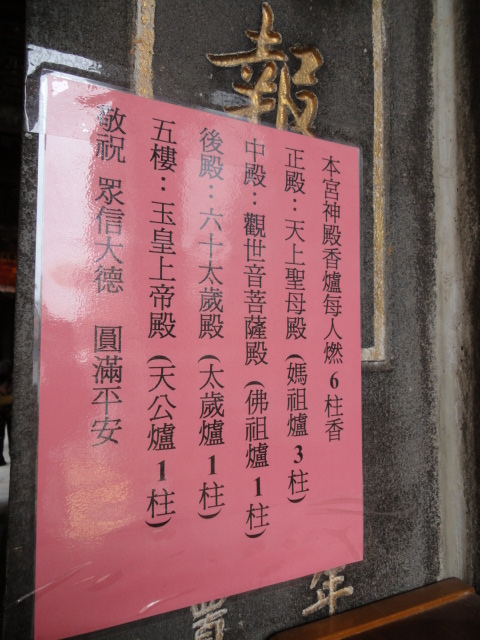 本宮神殿香爐每人燃6柱香
正殿：天上聖母殿（媽祖爐3柱）
中殿：觀世音菩薩殿（佛祖爐1柱）
後殿：六十太歲殿（太歲爐1柱）
五樓：玉皇上帝殿（天公爐1柱）
敬祝 眾信大德 圓滿平安
報
年